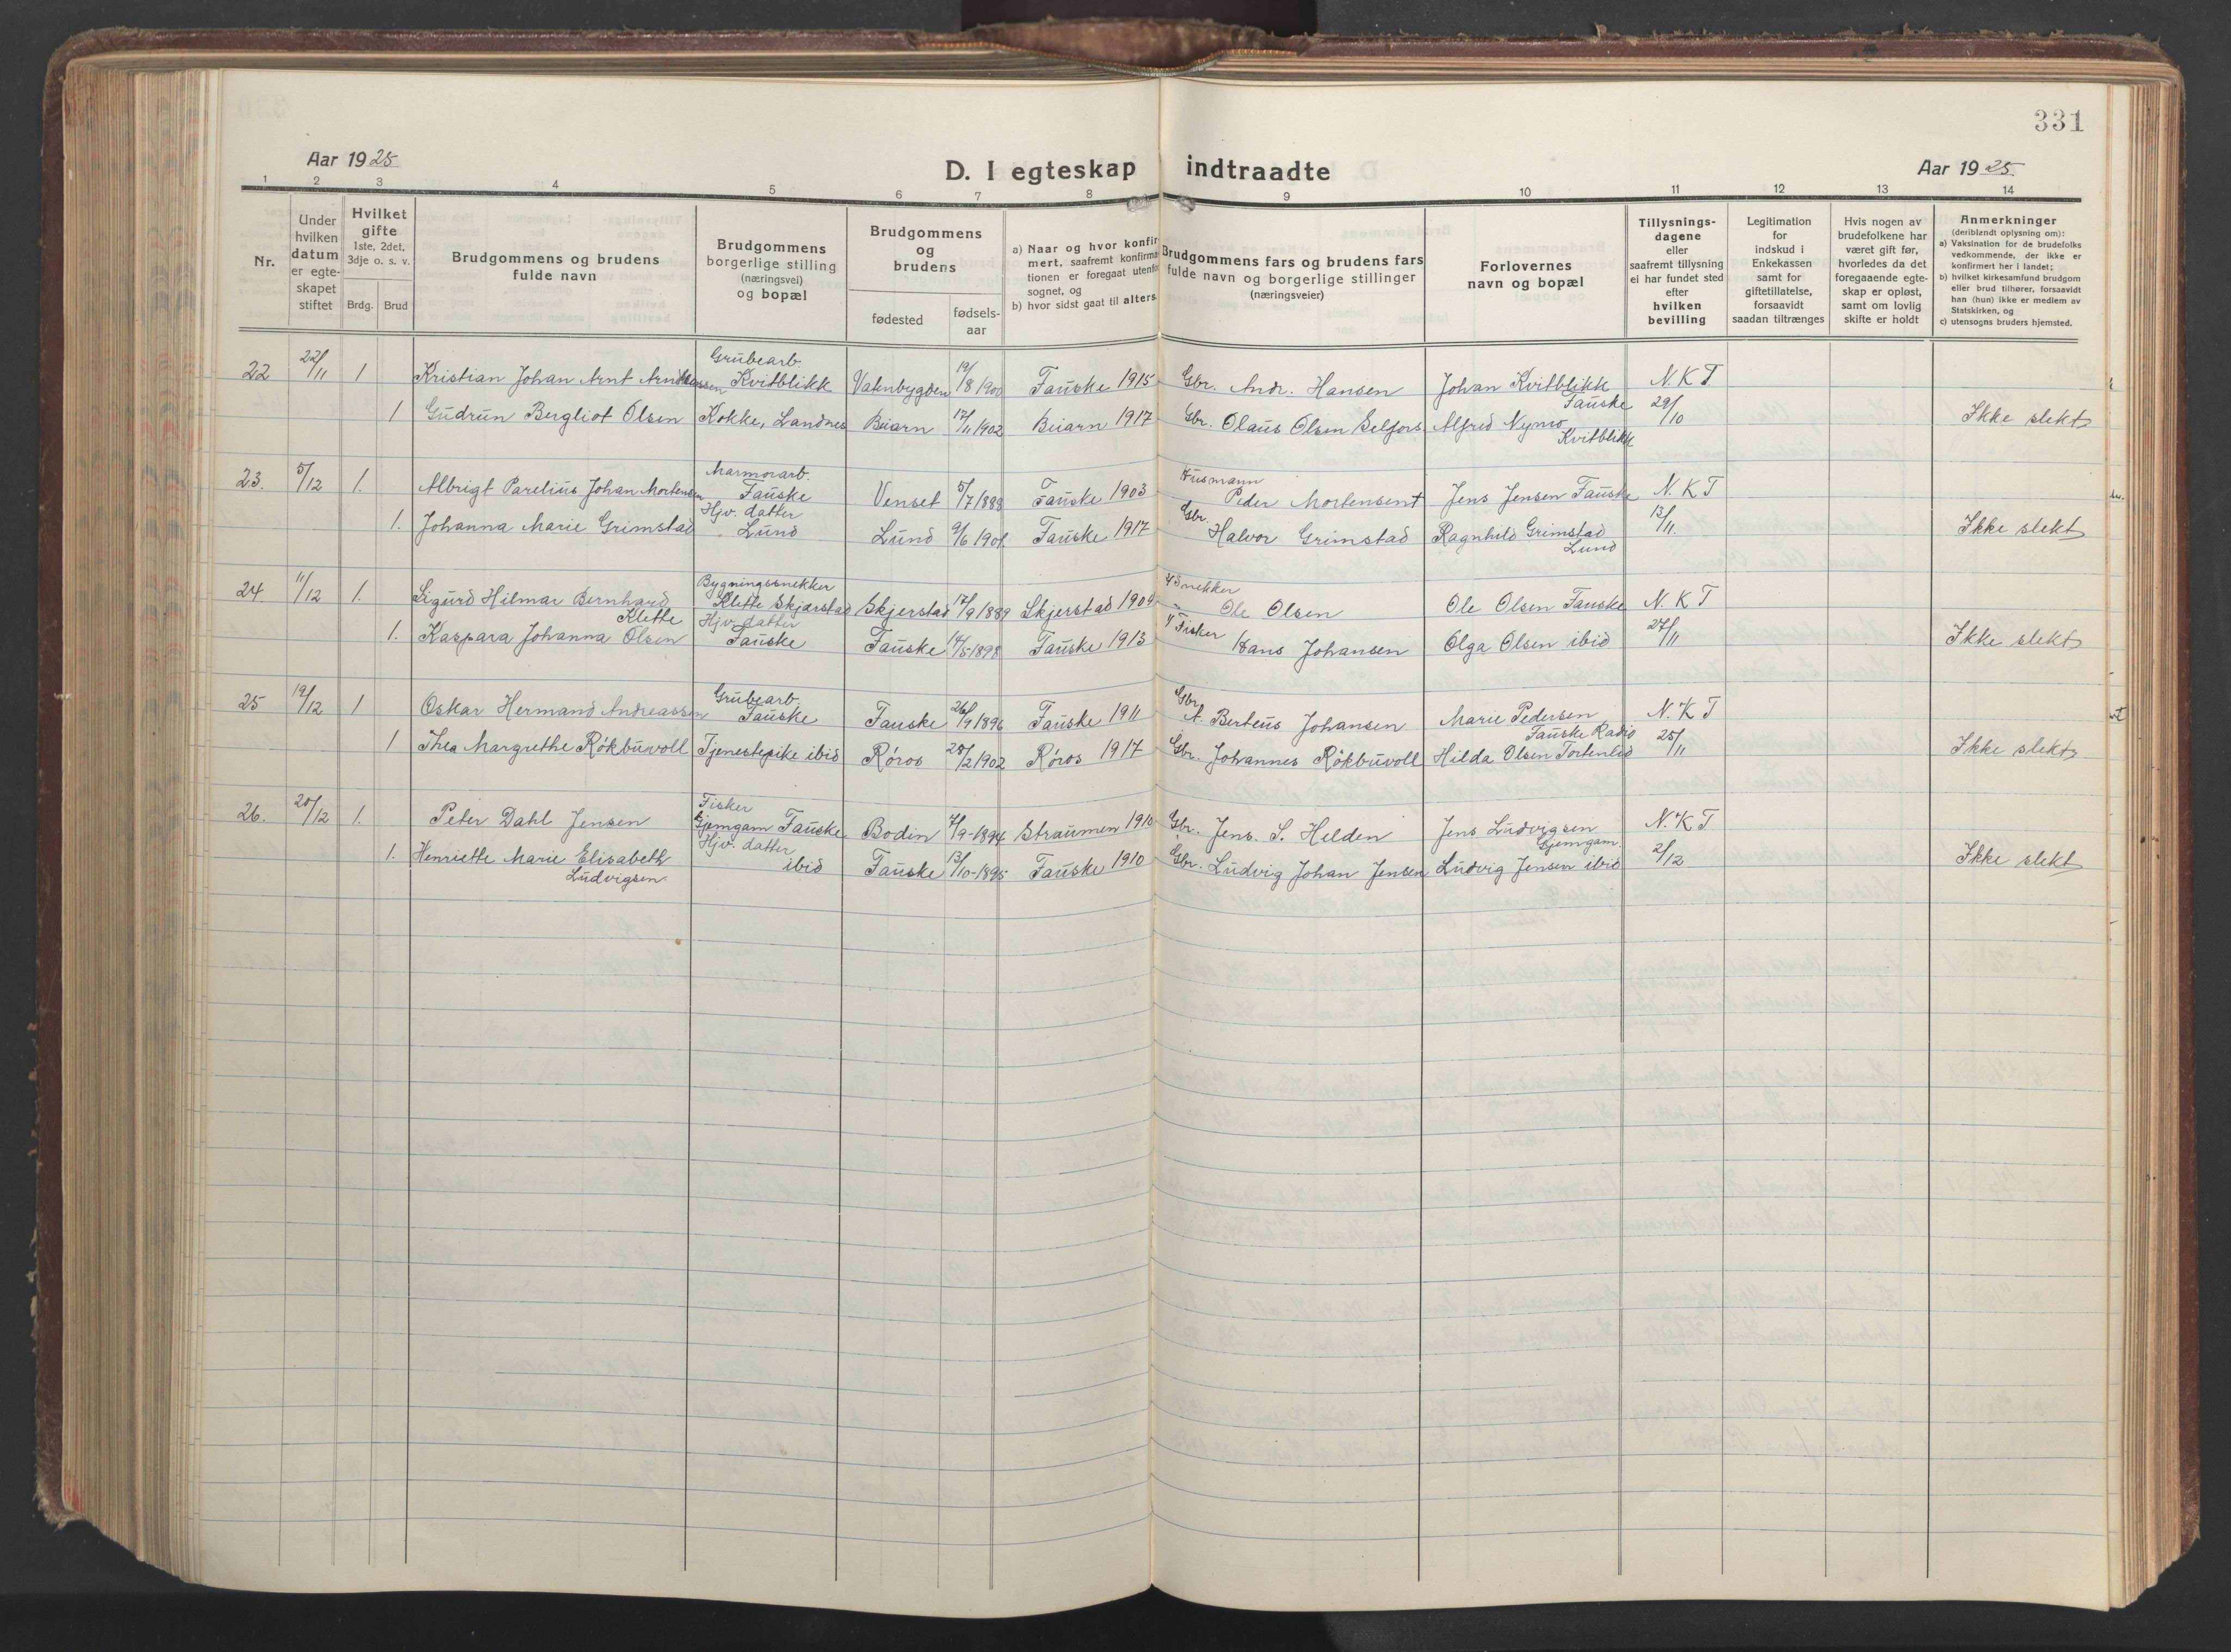 331
Aar 1925
D. I egteskap indtraadte
Aar 1925.
1 2 3 4 5 6 7 8 9 10 11 12 13 14
Nr.
Under hvilken datum er egteskapet stiftet
Hvilket gifte 1ste, 2det, 3dje o. s. v.
Brdg. Brud
Brudgommens og brudens fulde navn
Brudgommens borgerlige stilling (næringsvei) og bopæl
Brudgommens og brudens
fødested
fødsels-aar
a) Naar og hvor konfirmert, saafremt konfirmationen er foregaat utenfor sognet, og
b) hvor sidst gaat til alters.
Brudgommens fars og brudens fars fulde navn og borgerlige stillinger (næringsveier)
Forlovernes navn og bopæl
Tillysnings-dagene eller saafremt tillysning ei har fundet sted efter hvilken bevilling
Legitimation for indskud i Enkekassen samt for giftetillatelse, forsaavidt saadan tiltrænges
Hvis nogen av brudefolkene har været gift før, hvorledes da det foregaaende egte-skap er opløst, samt om lovlig skifte er holdt
Anmerkninger (deriblandt oplysning om):
a) Vaksination for de brudefolks vedkommende, der ikke er konfirmert her i landet;
b) hvilket kirkesamfund brudgom eller brud tilhører, forsaavidt han (hun) ikke er medlem av Statskirken, og
c) utensogns bruders hjemsted.
22 22/11 1 Kristian Johan Arnt Grubearb. Kvitblikk Vatnbygden 19/8 1900 Fauske 1915 Gbr. Andr. Hansen Johan Kvitblikk Fauske N. K T
1 Gudrun Bergliot Olsen Kokke, Landnes Beiarn 17/11 1902 Beiarn 1917 Gbr. Olaus Olsen Selfors Alfred Nymo Kvitblikk 29/10 Ikke slekt
23. 5/12 1. Albrigt Parelius Johan Mortensen Marmorarb. Fauske Venset 5/7 1888 Fauske 1903 Husmann Peder Mortensen † Jens Jensen Fauske N. K T
1. Johanna Marie Grimstad Hjv. datter Lund Lund 9/6 1901 Fauske 1917 Gbr. Halvor Grimstad Ragnhild Grimstad Lund 13/11. Ikke slekt
24 11/12 1. Sigurd Hilmar Bernhard Klette Bygningssnekker Klette Skjærstad Skjerstad 17/9 1889 Skjerstad 1904 Snekker Ole Olsen Ole Olsen Fauske N. K T
1. Kaspara Johanna Olsen Hjv. datter Fauske Fauske 14/5-1898 Fauske 1913 Fisker Hans Johansen Olga Olsen ibid 27/11 Ikke slekt
25 19/12 1 Oskar Hermand Andreassen Grubearb. Fauske Fauske 26/9 1896 Fauske 1911 Gbr. A. Berteus Johansen Marie Pedersen Fauske Radio N. K T
1 Thea Margrethe Rökbuvoll Tjenestepike ibid Röros 28/2 1902 Röros 1917 Gbr. Johannes Rökbuvoll Hilda Olsen Tortenlid 25/11 Ikke slekt
26. 20/12 1. Peter Dahl Jensen Fisker Gjemgam Fauske Bodin 4/9-1894 Straumen 1910 Gbr. Jens. S. Helden Jens Ludvigsen Gjemgam N. K T
1. Henriette Marie Elisabeth Ludvigsen Hjv. datter ibid Fauske 13/10-1895 Fauske 1910 Gbr. Ludvig Johan Jensen Ludvig Jensen ibid 2/12 Ikke slekt